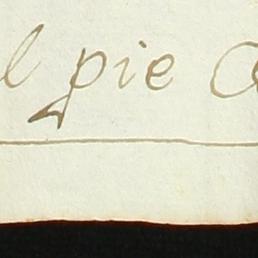 l pie